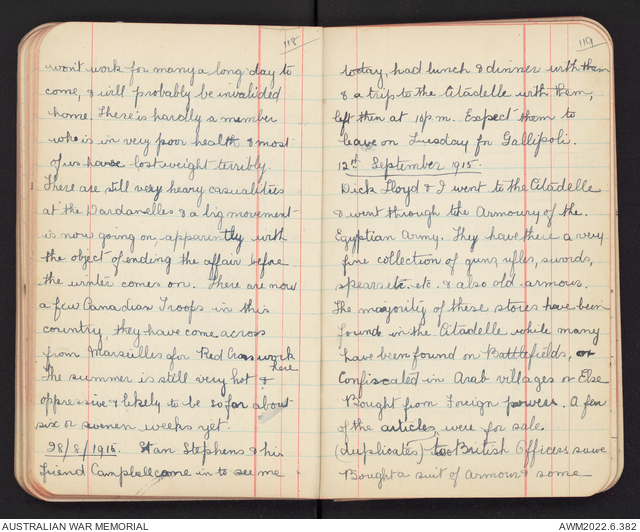 118
won't work for many a long day to
come, & will probably be invalided
home. There is hardly a member
who is in very poor health & most
of us have lost weight terribly.
There are still very heavy casualities
at the Dardanelles & a big movement
is now going on, apparently with
the object of ending the affair before
the winter comes on. There are now
a few Canadian Troops in this
country, they have come across
from Marseilles for Red Cross work
here
The summer is still very hot &
oppressive & likely to be so for about
six or seven weeks yet.
28/8/1915. Stan Stephens & his
friend Campbell came in to see me
119
today, had lunch & dinner with them
& a trip to the Citadelle with them,
left them at 11 p.m. Expect them to
leave on Tuesday for Gallipoli.
12th September 1915.
Dick Lloyd & I went to the Citadelle
& went through the Armoury of the
Egyptian Army. They have there a very
fine collection of guns, rifles, swords,
spears etc. etc. & also old armour.
The majority of these stores have been
found in the Citadelle while many
have been found on Battlefields, or
Confiscated in Arab villages or Else
Bought from Foreign powers. A few
of the articles were for sale
(duplicates) to British Officers so we
Bought a suit of Armour & some
AUSTRALIAN WAR MEMORIAL
AWM2022.6.382